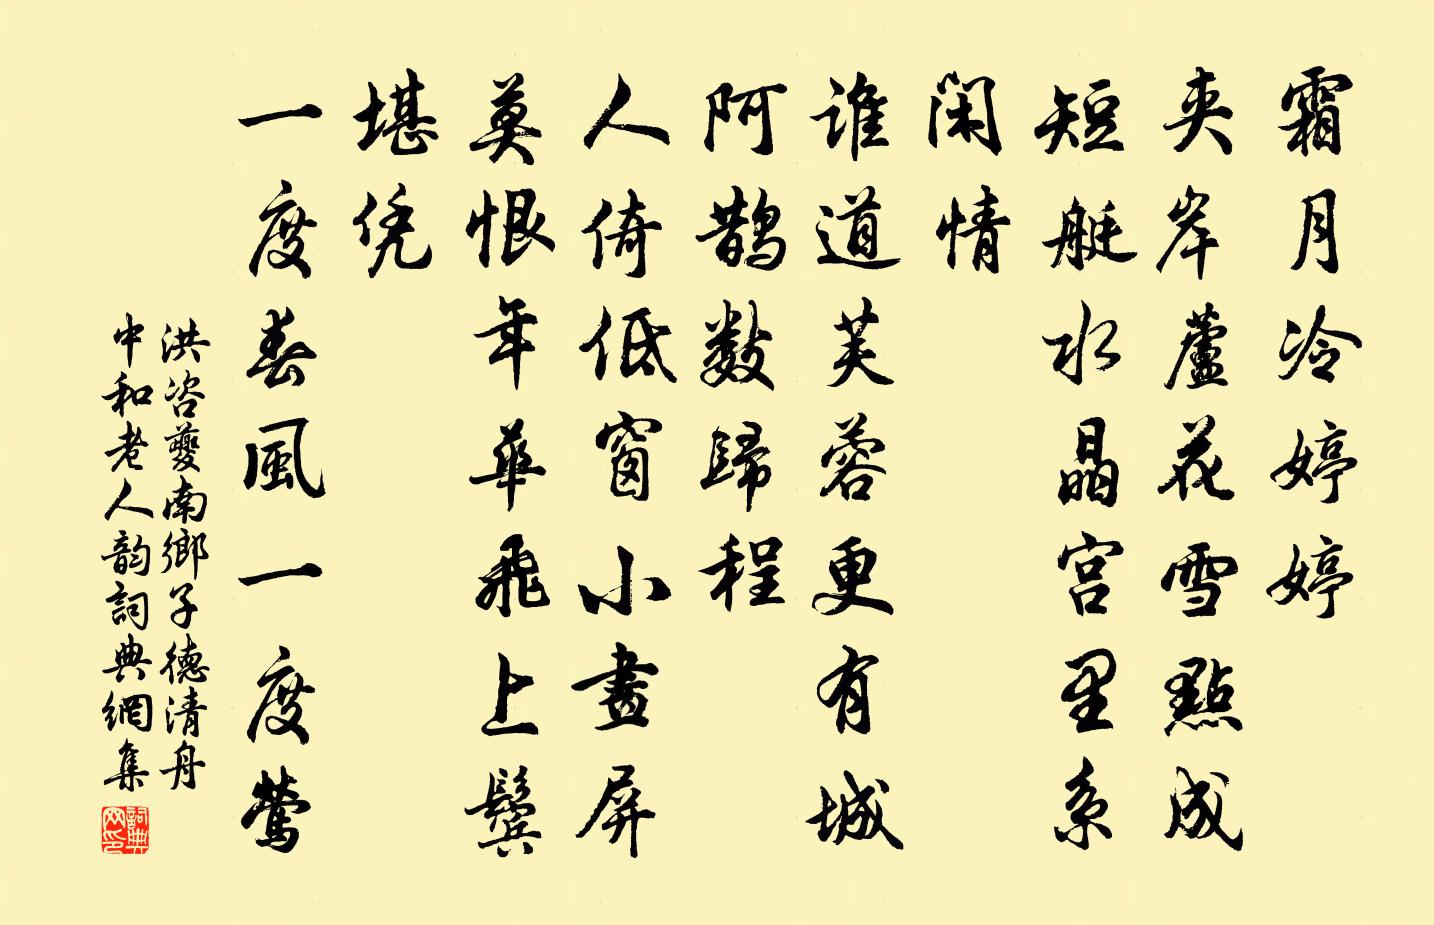 霜月冷婷婷
夹岸蘆花雪點成
短艇水晶宫里系
闲情
谁道芙蓉更有城
阿鹊数歸程
人倚低窗小畫屏
莫恨年華飛上鬢
堪凭
一度春風一度鶯
洪咨夔南鄉子德清舟
中和老人韵詞典網集
詞典网印